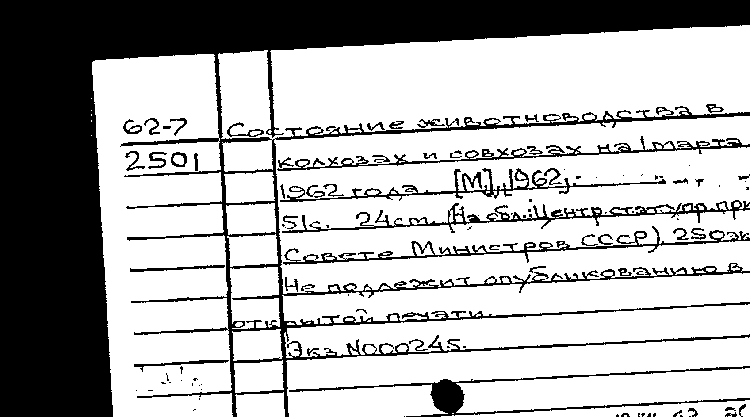 62-7 Состояние животноводства в
2501 колхозах и совхозах на 1 марта
1962 года. [М], 1962.
51с. 24cm. (На обл.: Центр. стат. упр. при
Совете Министров СССР). 250эк
Не подлежит опубликованию в
открытой печати.
Экз. N000245.